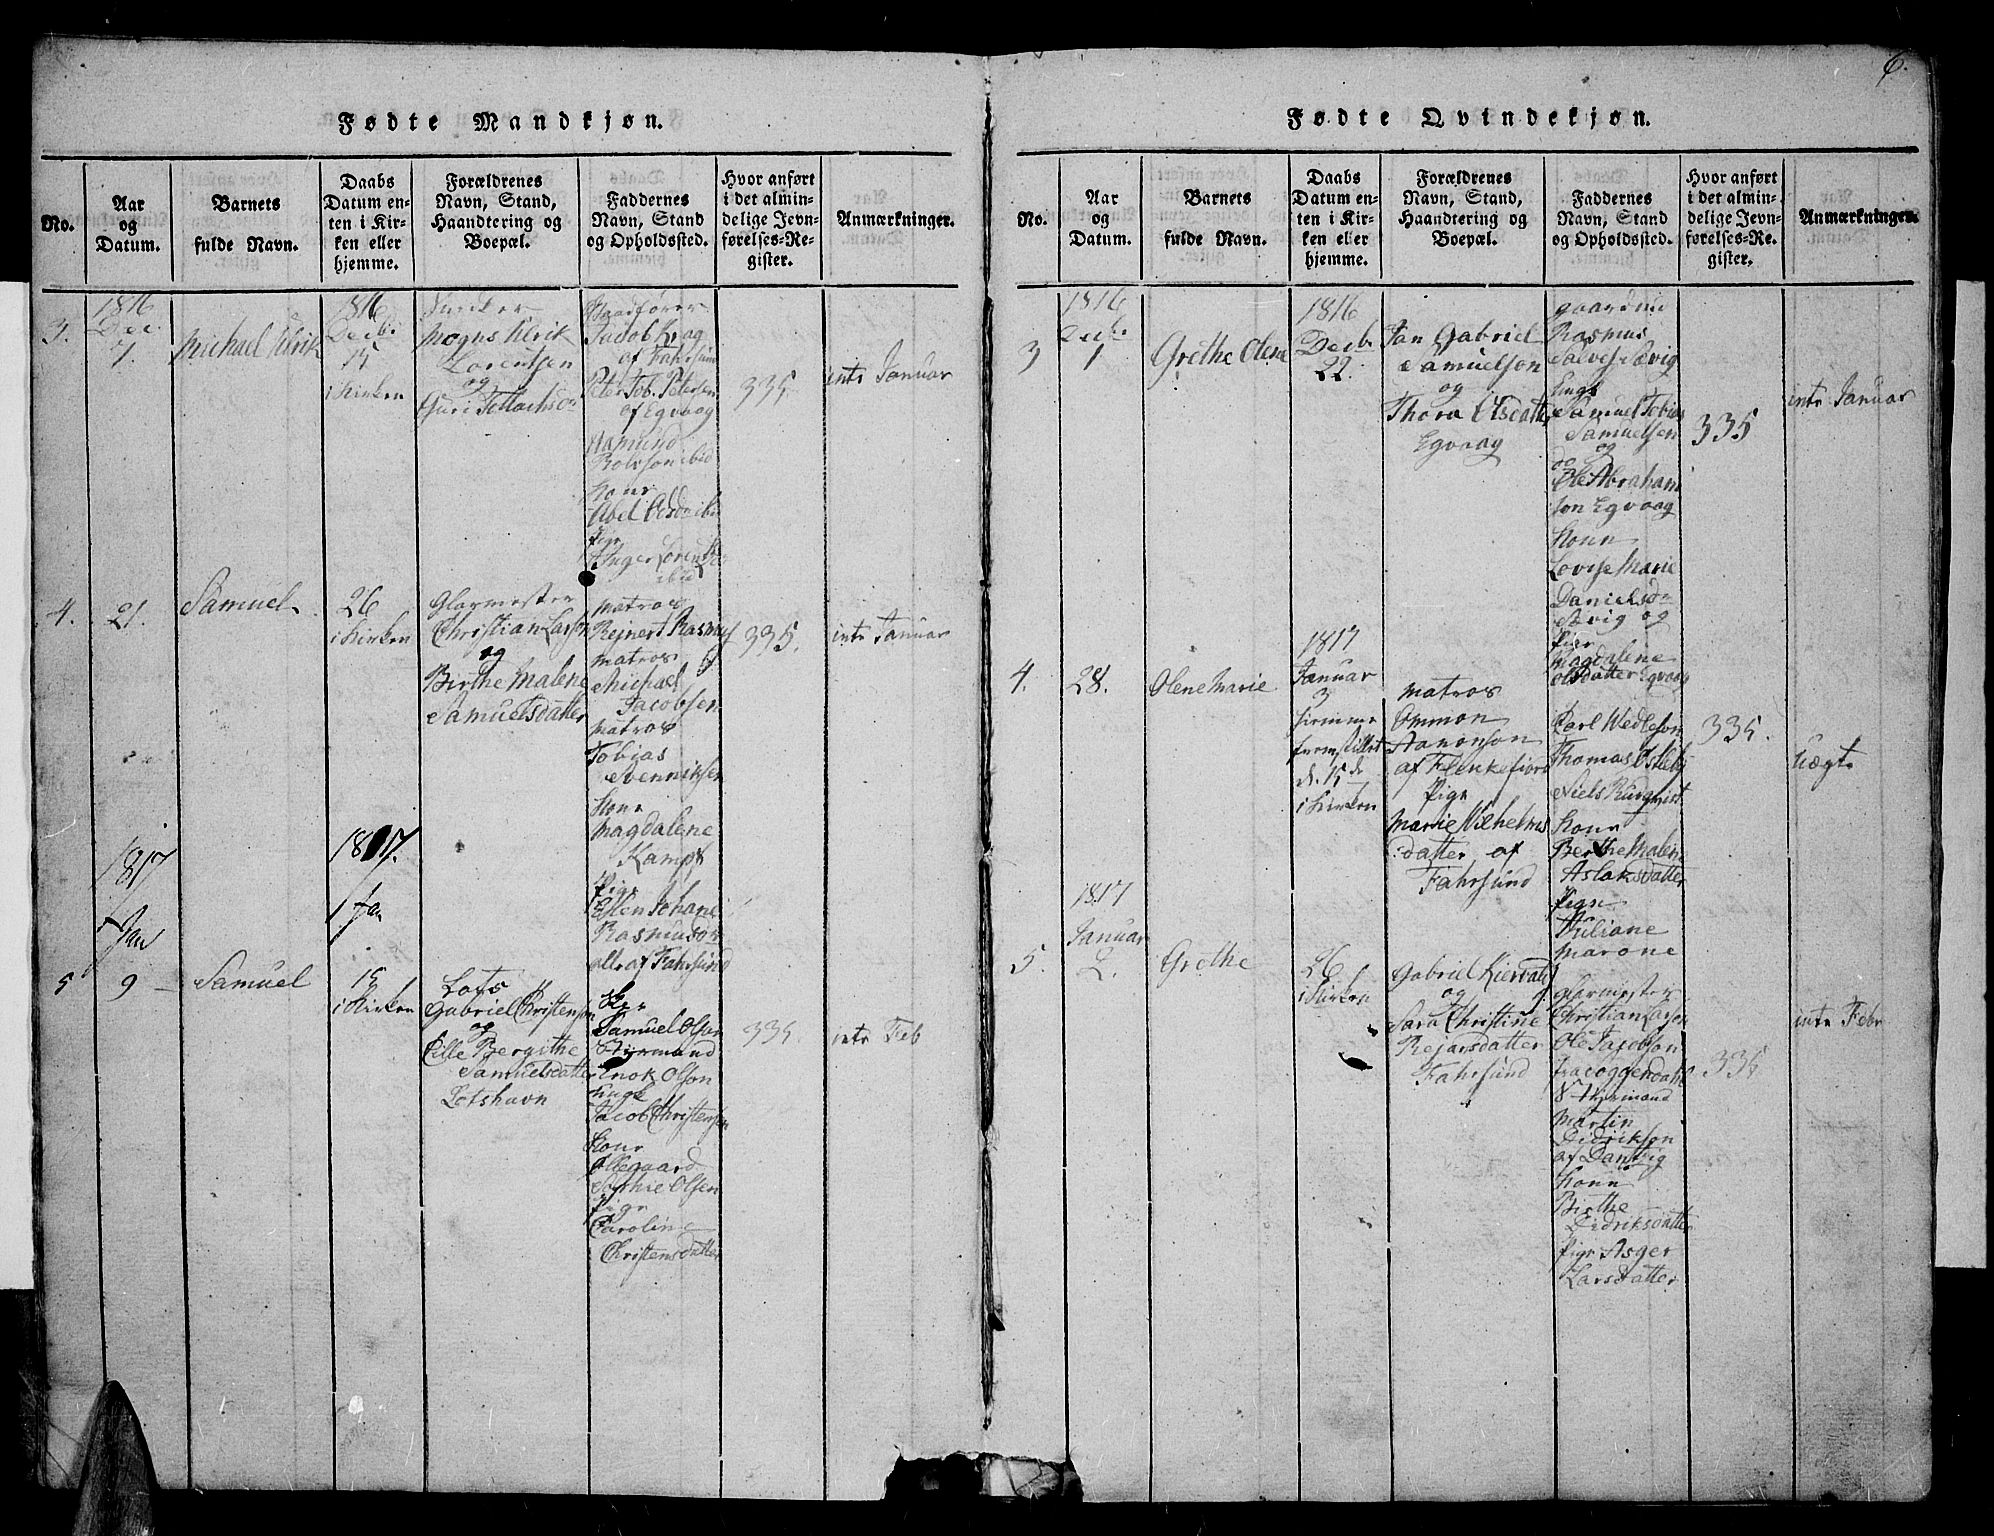 6.
Fødte Mandkjøn.
No.
Aar
og
Datum.
Barnets
fulde Navn.
Daabs
Datum en-
ten i Kir-
ken eller
hjemme.
Forældrenes
Navn, Stand,
Haandtering og
Boepæl.
Faddernes
Navn, Stand
og Opholdssted.
Hvor anført
i det almin-
delige Jevn-
førelses-Re-
gister.
Anmærkninger.
3.
1816
Dec.
7.
Michael Ulrik
1816
Decb.
15
i Kirken
Snedker
Mogns Ulrik
Lorentsen
og
Guri
Baadfører
Jacob Krag
af Fahrsund
Peter Tob. Petersen
af Egvaag
Hamund
Rolvson ibid
Kone
Abel
Pige
Inger
ibid
335.
intr Januar
4.
21.
Samuel
26
i Kirken
Glarmester
Christian Larsen
og
Birthe Malene
Samuelsdatter
Matros
Rejnert Rasmus
Matros
Michael
Jacobsen
Matros
Tobias
Svenniksen
Kone
Magdalene
Kamp
Pige
Ellen Johane
alle af Fahrsund
335.
intr Januar
1817
Jan
1817.
Jan
5
9
Samuel
15
i Kirken
Lots
Gabriel Christensen
og
Cille Bergithe
Samuelsdatter
Lotshavn
Samuel Olsen
Styrmand
Enok Olson
Jacob Christensen
Kone
Ollegaard
Sophie Olsen
Pige
Caroline
Christensdatter
335.
intr Feb
Fødte Qvindekjøn.
No.
Aar
og
Datum.
Barnets
fulde Navn.
Daabs
Datum en-
ten i Kir-
ken eller
hjemme.
Forældrenes
Navn, Stand,
Haandtering og
Boepæl.
Faddernes
Navn, Stand
og Opholdssted.
Hvor anført
i det almin-
delige Jevn-
førelses-Re-
gister.
Anmærkninger.
3
1816
Decb.
1
Grethe Olene
1816
Decb.
22.
Jan Gabriel
Samuelson
og
Thora Olsdatter
Egvaag
Rasmus
Salves
Samuel Tobias
Samuelsen
og
Ole Abraham
son Egvaag
Kone
Lovise Marie
og
Pige
Magdalene
Olsdatter Egvaag
335
intr Januar
4.
28.
Olene Marie
1817
Januar
3
hiemme
fremstillet
d. 15de
i Kirken
Matros
Ommon
Aanonson
af Flekkefiord
Pige
Marie Vilhelms
datter af
Fahrsund
Karl Wedleson
Thomas
Niels
Kone
Berthe Malene
Aslaksdatter
Pige
Juliane
Marone
335.
Uægte
1817
Januar
5.
2.
Grethe
26
i Kirken
Gabriel
og
Sara Christine
Rejarsdatter
Fahrsund
Glarmester
Christian Larsen
Ole Jacobson
Styrmand
Martin
Didrikson
af Dantzig
Kone
Birthe
Didriksdatter
Pige Asger
Larsdatter
335
intr Febr